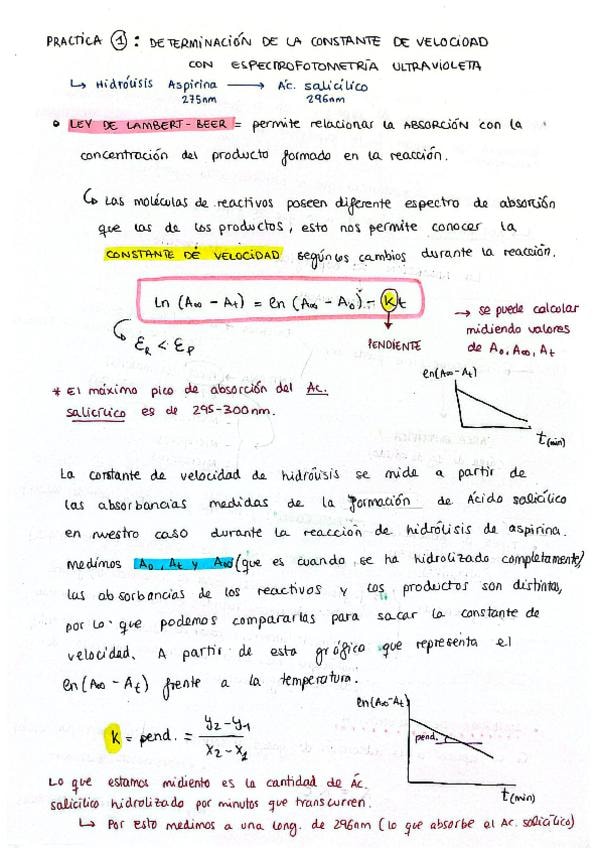 PRACTICA ① : DETERMINACIÓN DE LA CONSTANTE DE VELOCIDAD
CON ESPECTROFOTOMETRÍA ULTRAVIOLETA
↳ Hidrólisis Aspirina → Ác. salicílico
275nm 296nm
• LEY DE LAMBERT-BEER = permite relacionar la ABSORCIÓN con la
concentración del producto formado en la reacción.
↳ Las moléculas de reactivos poseen diferente espectro de absorción
que las de los productos, esto nos permite conocer la
CONSTANTE DE VELOCIDAD según los cambios durante la reacción.
Ln (A∞ - At) = ln (A∞ - A0) - kt
→ se puede calcular
midiendo valores
de A0, A∞, At
εR < εP
PENDIENTE
ln(A∞-At)
t(min)
* El máximo pico de absorción del Ac.
salicílico es de 295-300nm.
La constante de velocidad de hidrólisis se mide a partir de
las absorbancias medidas de la formación de Ácido salicílico
en nuestro caso durante la reacción de hidrólisis de aspirina.
Medimos A0, At y A∞ (que es cuando se ha hidrolizado completamente)
las absorbancias de los reactivos y los productos son distintas,
por lo que podemos compararlas para sacar la constante de
velocidad. A partir de esta gráfica que representa el
ln(A∞ - At) frente a la temperatura.
ln(A∞-At)
pend.
t(min)
k = pend. = y2-y1 / x2-x1
Lo que estamos midiento es la cantidad de Ác.
salicilico hidrolizado por minutos que transcurren.
↳ Por esto medimos a una long. de 296nm (lo que absorbe el Ac. salicílico)